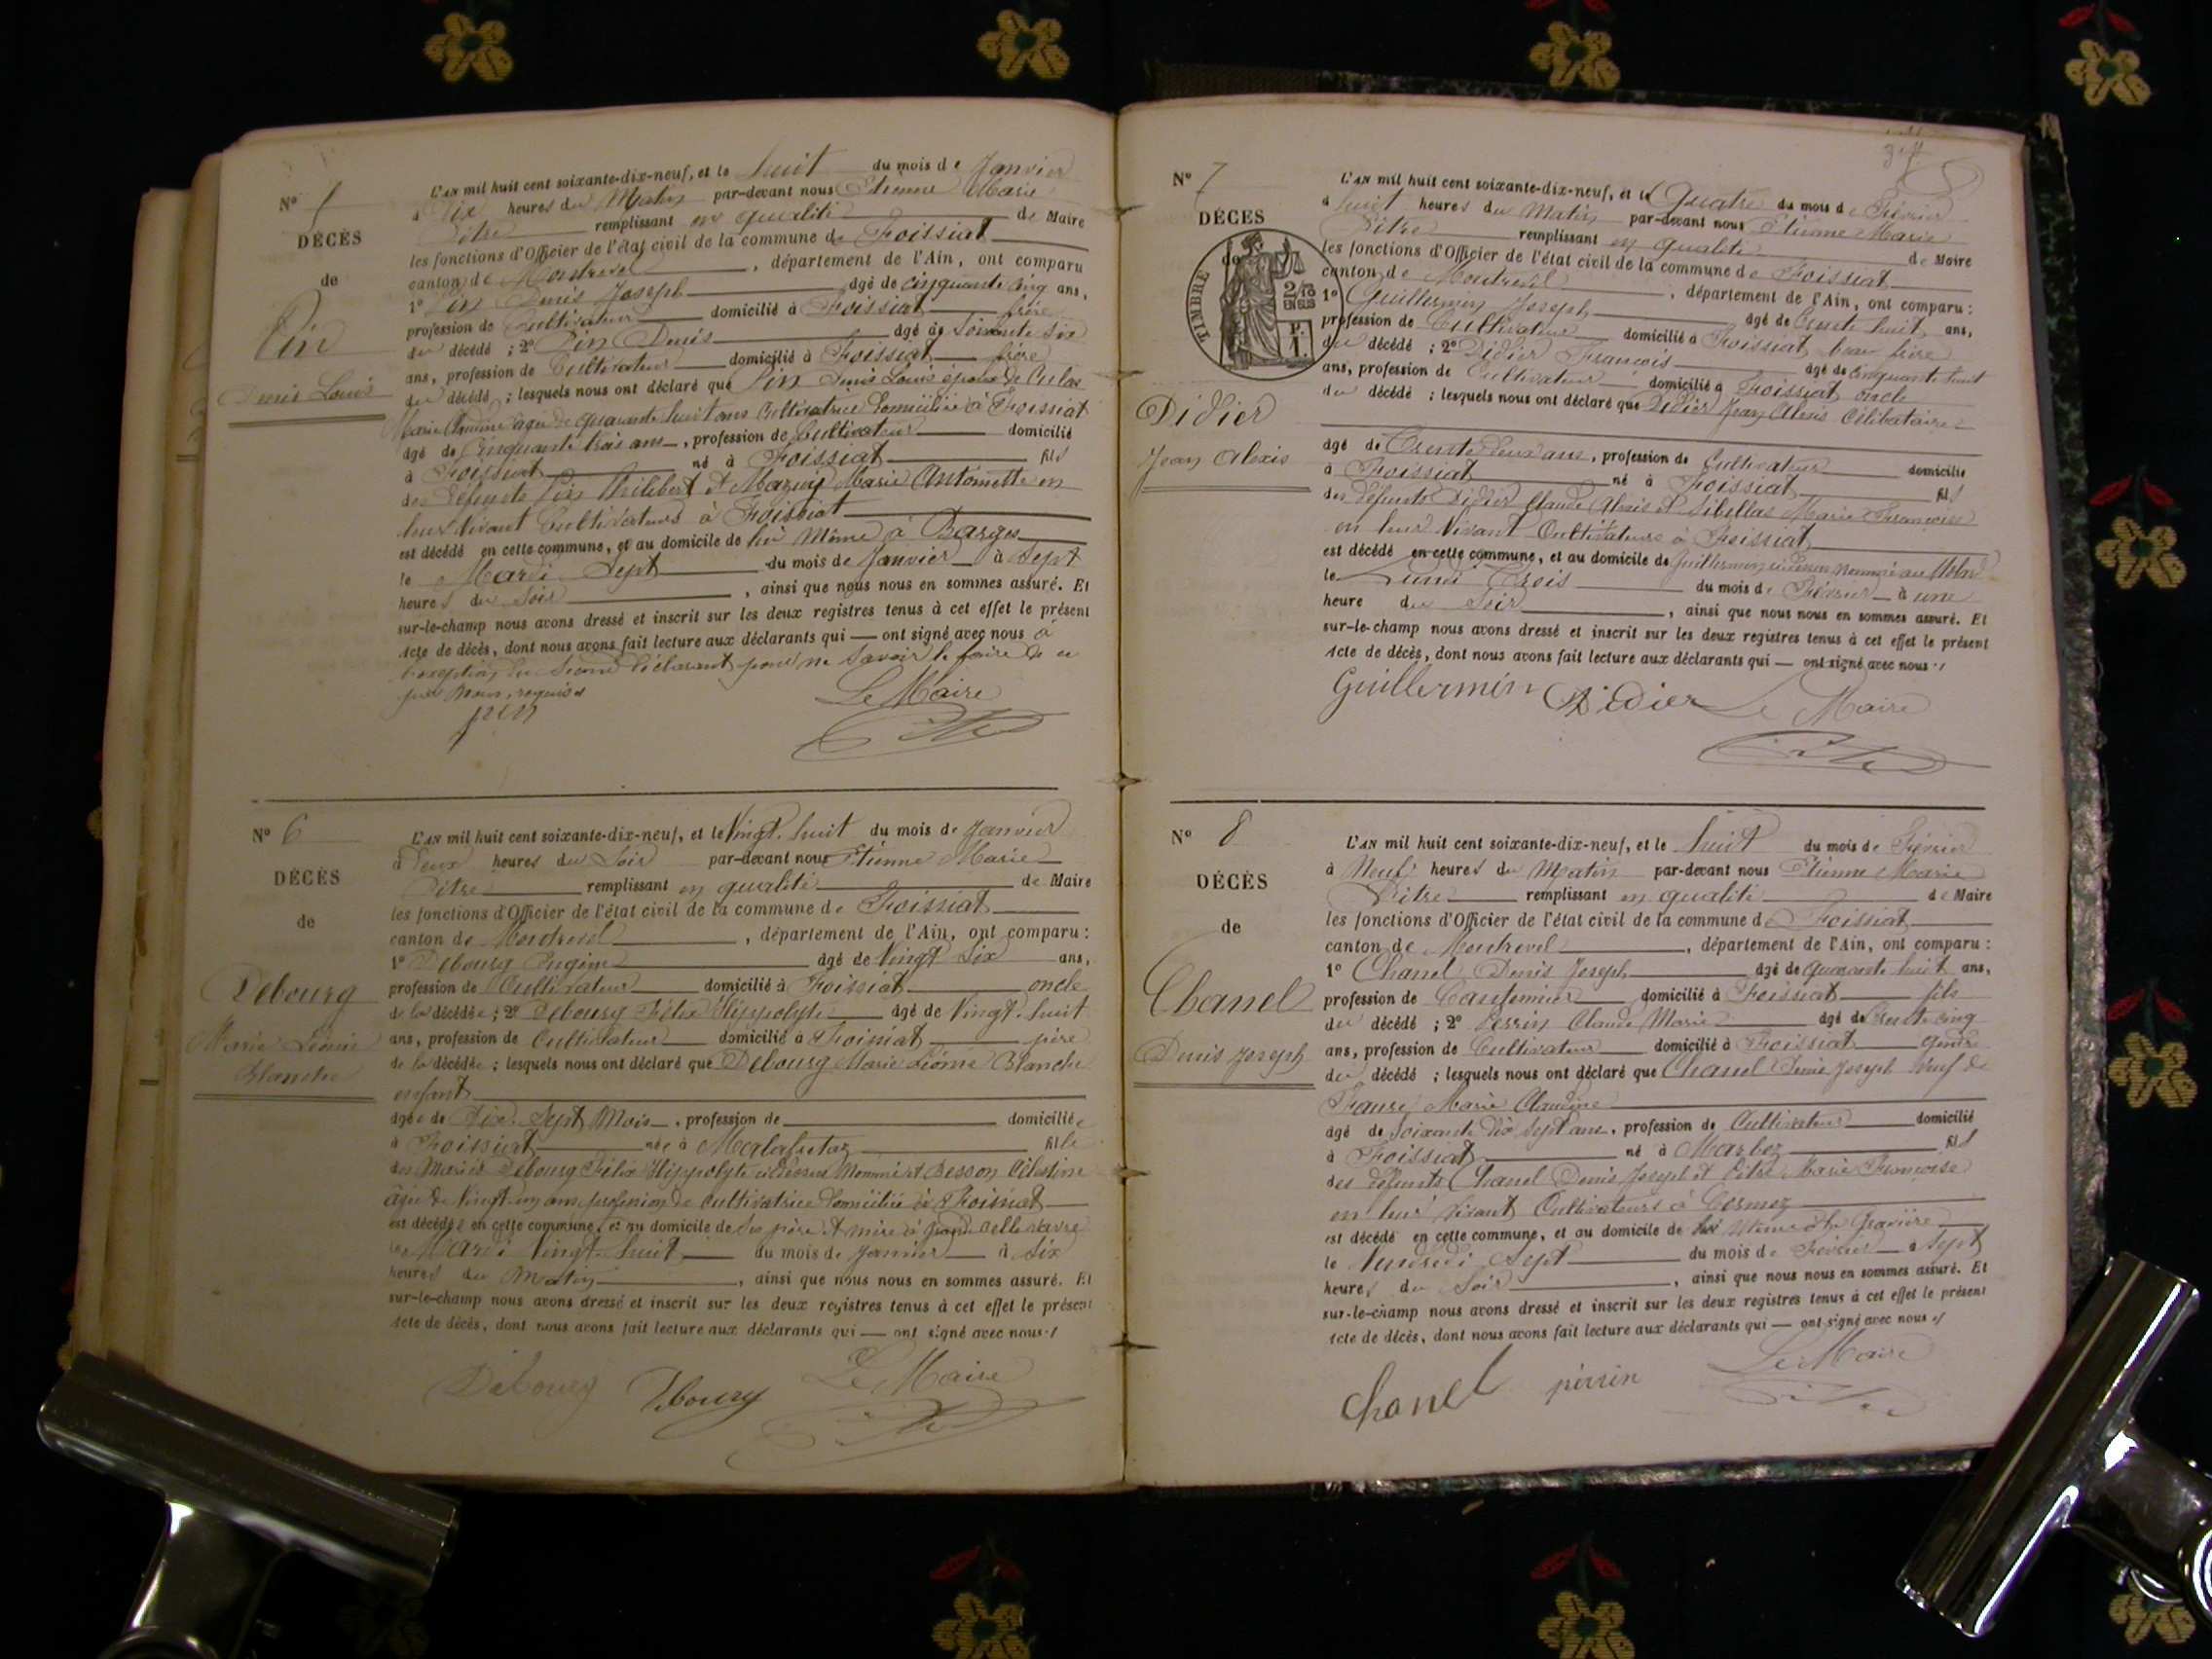 N° 5
DÉCÈS
de
Pin
Denis Louis
L'AN mil huit cent soixante-dix-neuf, et le huit du mois de Janvier
à Dix heures du Matin par-devant nous Etienne Marie
Pitre remplissant en qualité de Maire
les fonctions d'Officier de l'état civil de la commune de Foissiat
canton de Montrevel, département de l'Ain, ont comparu
1° Pin Denis Joseph âgé de cinquante cinq ans,
profession de Cultivateur domicilié à Foissiat frère
du décédé ; 2° Pin Denis âgé de Soixante six
ans, profession de Cultivateur domicilié à Foissiat frère
du décédé ; lesquels nous ont déclaré que Pin Denis Louis époux de Culas
Marie agée de quarante huit ans Cultivatrice Domiciliée à Foissiat
âgé de Cinquante trois ans, profession de Cultivateur domicilié
à Foissiat né à Foissiat fils
des défunts Pin Philibert et Mazuy Marie Antoinette en
leur vivant Cultivateurs à Foissiat
est décédé en cette commune, et au domicile de lui Même à Barges
le Mardi Sept du mois de Janvier à Sept
heures du Soir, ainsi que nous nous en sommes assuré. Et
sur-le-champ nous avons dressé et inscrit sur les deux registres tenus à cet effet le présent
acte de décès, dont nous avons fait lecture aux déclarants qui — ont signé avec nous à
l'exception du Second déclarant pour ne Savoir le faire de ce
par Nous, requis
pin
Le Maire
N° 6
DÉCÈS
de
Debourg
Marie Léonie
Blanche
L'AN mil huit cent soixante-dix-neuf, et le Vingt-huit du mois de Janvier
à Deux heures du Soir par-devant nous Etienne Marie
Pitre remplissant en qualité de Maire
les fonctions d'Officier de l'état civil de la commune de Foissiat
canton de Montrevel, département de l'Ain, ont comparu :
1° Debourg Eugène âgé de Vingt Six ans,
profession de Cultivateur domicilié à Foissiat oncle
de la décédée ; 2° Debourg Félix Hippolyte âgé de Vingt-huit
ans, profession de Cultivateur domicilié à Foissiat père
de la décédée ; lesquels nous ont déclaré que Debourg Marie Léonie Blanche
enfant
âgée de Dix-Sept Mois, profession de domiciliée
à Foissiat née à Malafretaz fille
des Mariés Debourg Félix Hippolyte ci dessus Nommé et Besson Célestine
âgée de Vingt-un ans profession de Cultivatrice Domiciliée à Foissiat
est décédée en cette commune, et au domicile de Ses père et mère à
le Mardi Vingt-huit du mois de Janvier à Six
heures du Matin, ainsi que nous nous en sommes assuré. Et
sur-le-champ nous avons dressé et inscrit sur les deux registres tenus à cet effet le présent
acte de décès, dont nous avons fait lecture aux déclarants qui — ont signé avec nous
Debourg Debourg Le Maire
N° 7
DÉCÈS
de
TIMBRE
2/10
EN SUS
P.
1.
Didier
Jean Alexis
L'AN mil huit cent soixante-dix-neuf, et le Quatre du mois de Février
à huit heures du Matin par-devant nous Etienne Marie
Pitre remplissant en qualité de Maire
les fonctions d'Officier de l'état civil de la commune de Foissiat
canton de Montrevel, département de l'Ain, ont comparu :
1° Guillermin Joseph âgé de Trente huit ans,
profession de Cultivateur domicilié à Foissiat beau frère
du décédé ; 2° Didier François âgé de cinquante huit
ans, profession de Cultivateur domicilié à Foissiat oncle
du décédé ; lesquels nous ont déclaré que Didier Jean Alexis Célibataire
âgé de Trente deux ans, profession de Cultivateur domicilié
à Foissiat né à Foissiat fils
des défunts Didier Claude Alexis et Sibellas Marie Françoise
en leur Vivant Cultivateurs à Foissiat
est décédé en cette commune, et au domicile de Guillermin ci dessus nommé au
le Lundi Trois du mois de Février à une
heure du Soir, ainsi que nous nous en sommes assuré. Et
sur-le-champ nous avons dressé et inscrit sur les deux registres tenus à cet effet le présent
acte de décès, dont nous avons fait lecture aux déclarants qui — ont signé avec nous
Guillermin Didier Le Maire
N° 8
DÉCÈS
de
Chanel
Denis Joseph
L'AN mil huit cent soixante-dix-neuf, et le huit du mois de Février
à Neuf heures du Matin par-devant nous Etienne Marie
Pitre remplissant en qualité de Maire
les fonctions d'Officier de l'état civil de la commune de Foissiat
canton de Montrevel, département de l'Ain, ont comparu :
1° Chanel Denis Joseph âgé de quarante huit ans,
profession de Cantonnier domicilié à Foissiat fils
du décédé ; 2° Perrin Claude Marie âgé de Trente cinq
ans, profession de Cultivateur domicilié à Foissiat gendre
du décédé ; lesquels nous ont déclaré que Chanel Denis Joseph Veuf de
Faure Marie Claudine
âgé de Soixante Dix Sept ans, profession de Cultivateur domicilié
à Foissiat né à Marboz fils
des défunts Chanel Denis Joseph et Pitre Marie Françoise
en leur Vivant Cultivateurs à Cormoz
est décédé en cette commune, et au domicile de lui Même à la Gravière
le Vendredi Sept du mois de Février à Sept
heures du Soir, ainsi que nous nous en sommes assuré. Et
sur-le-champ nous avons dressé et inscrit sur les deux registres tenus à cet effet le présent
acte de décès, dont nous avons fait lecture aux déclarants qui — ont signé avec nous
Chanel perrin Le Maire